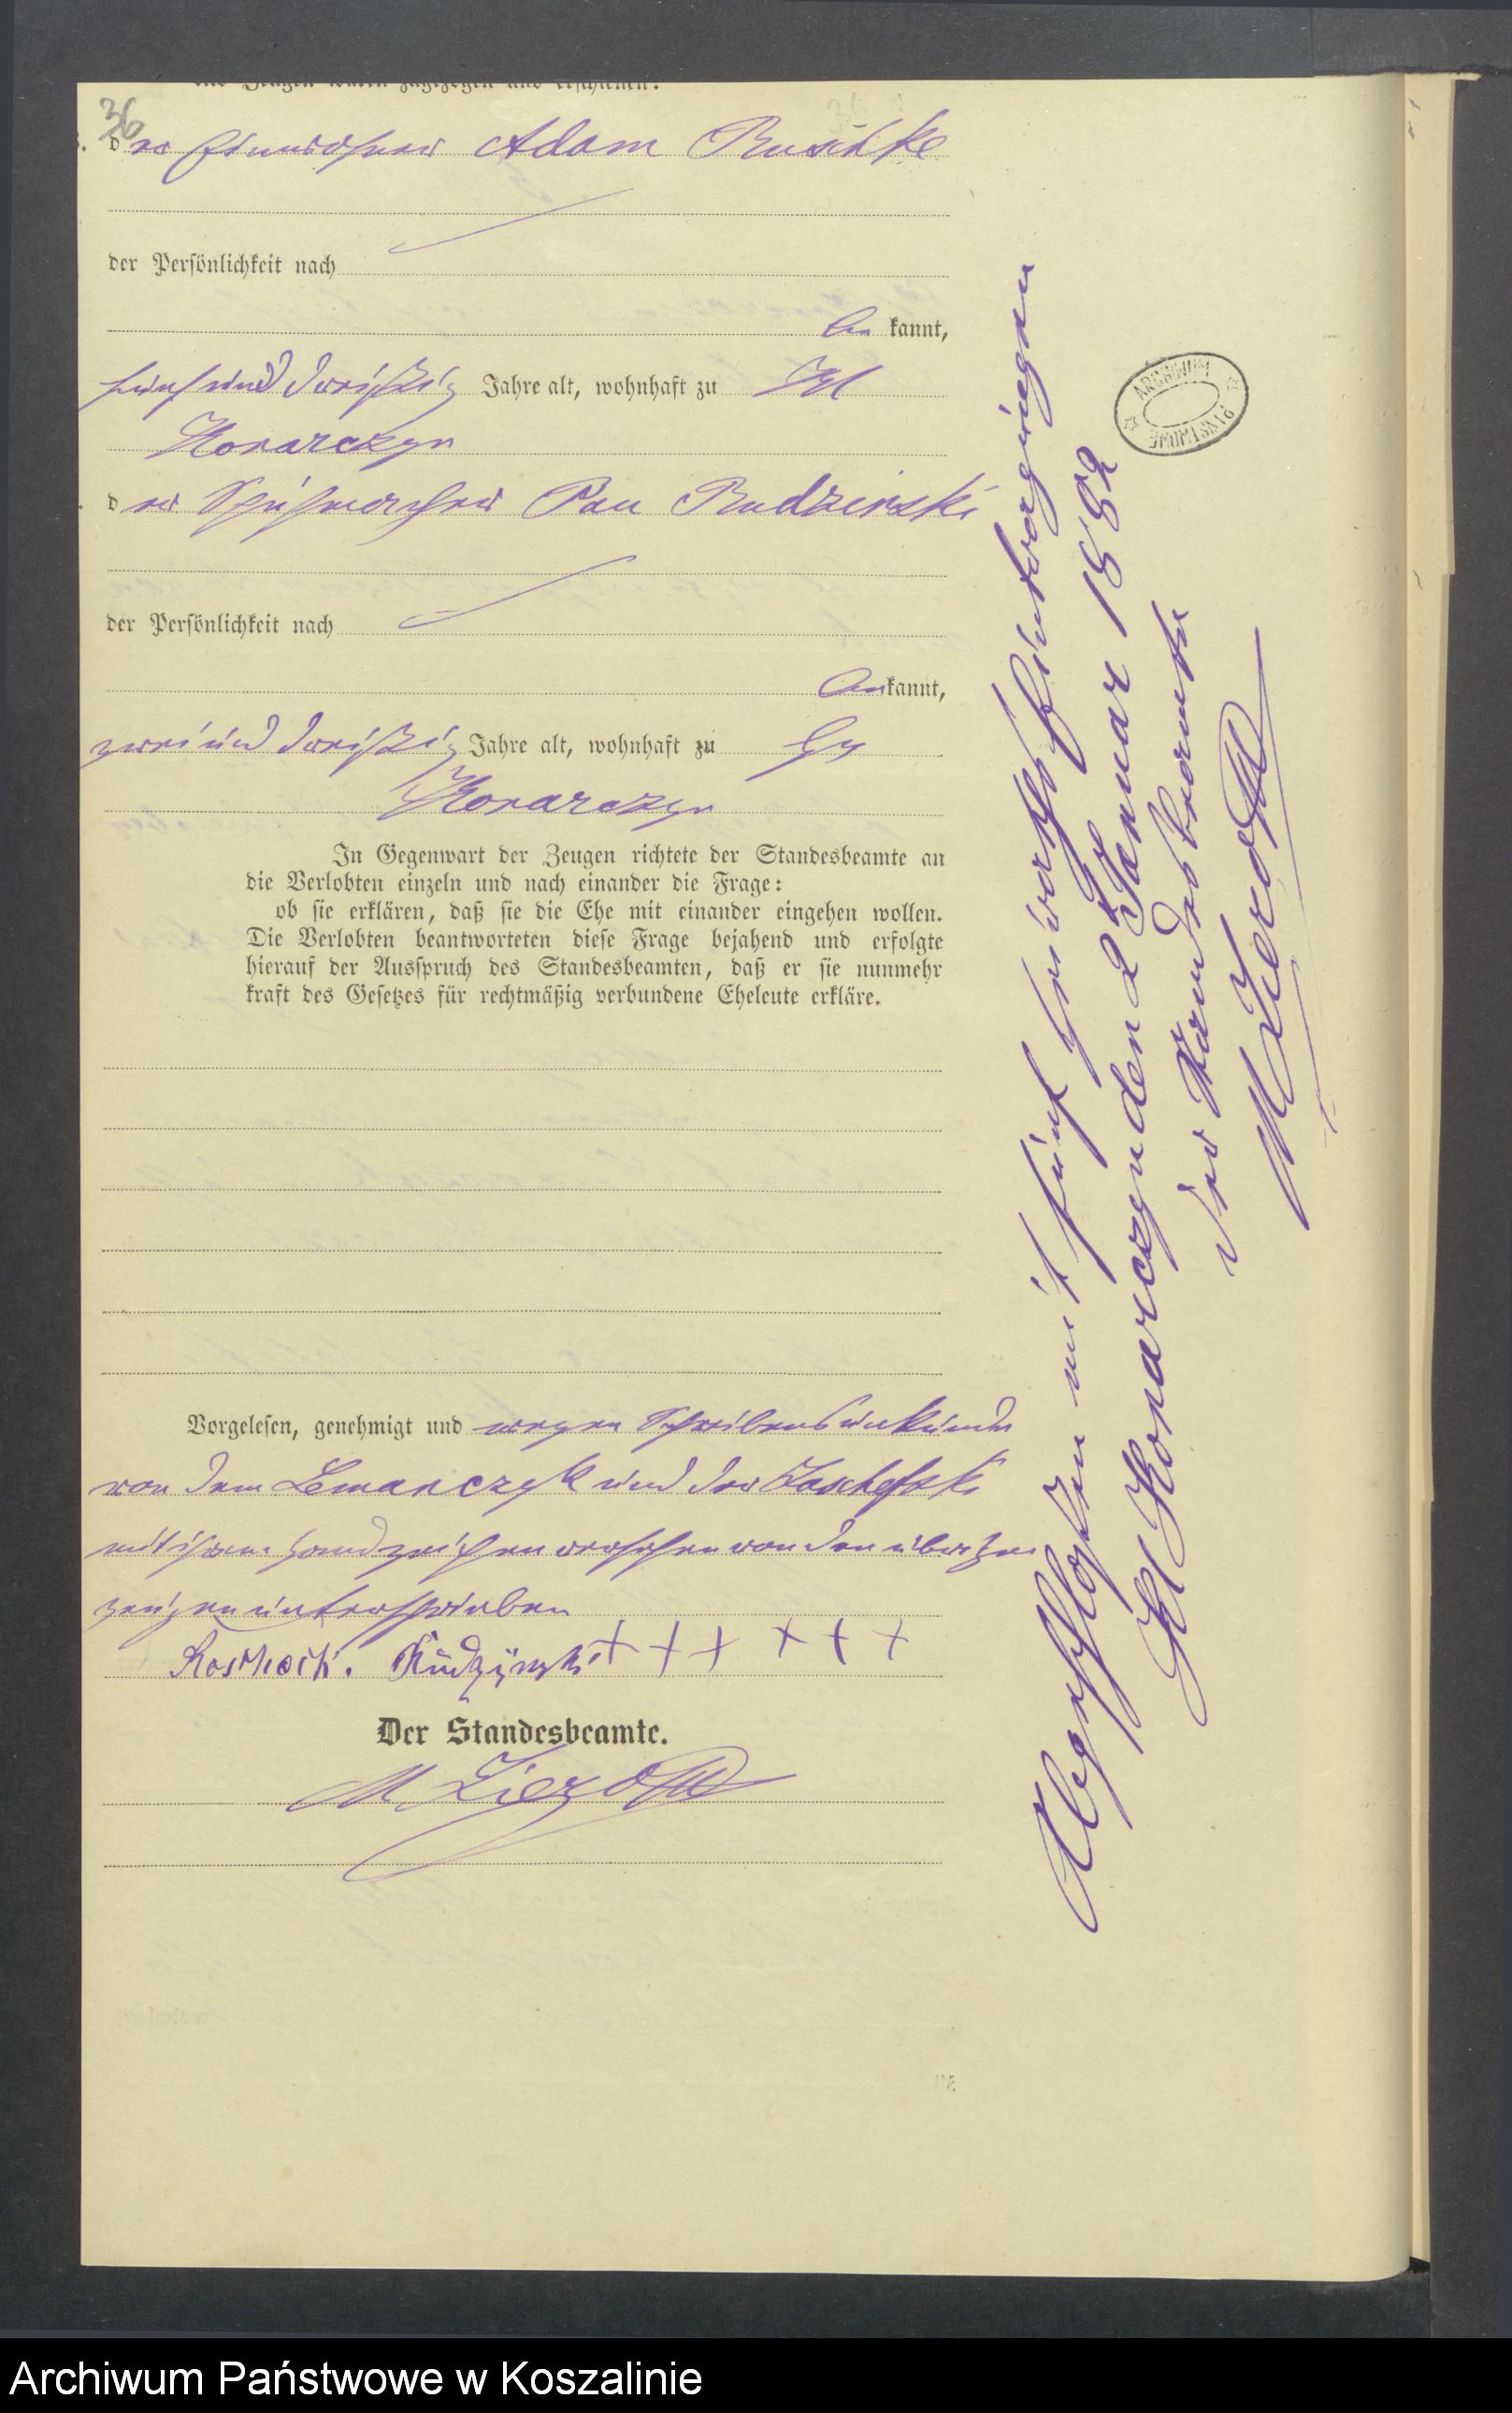 36
als Zeugen waren zugezogen und erschienen:
der Einwohner Adam
der Persönlichkeit nach
bekannt,
fünfunddreißig Jahre alt, wohnhaft zu Kl
Konarczyn
der Schuhmacher Pau Rudzinski
der Persönlichkeit nach
bekannt,
zweiunddreißig Jahre alt, wohnhaft zu Gr
Konarczyn
In Gegenwart der Zeugen richtete der Standesbeamte an
die Verlobten einzeln und nach einander die Frage:
ob sie erklären, daß sie die Ehe mit einander eingehen wollen.
Die Verlobten beantworteten diese Frage bejahend und erfolgte
hierauf der Ausspruch des Standesbeamten, daß er sie nunmehr
kraft des Gesetzes für rechtmäßig verbundene Eheleute erkläre.
Vorgelesen, genehmigt und wegen Schreibensunkunde
von dem Lemanczyk und der
mit ihren Handzeichen versehen von den
zeugen unterschrieben
Rudzynski +++ +++
Der Standesbeamte.
M.
Abgeschlossen mit fünf Eintragungen
Kl Konarczyn den 2 Januar 1882
der Standesbeamte
M
ARCHIWUM PAŃSTWOWE
Archiwum Państwowe w Koszalinie